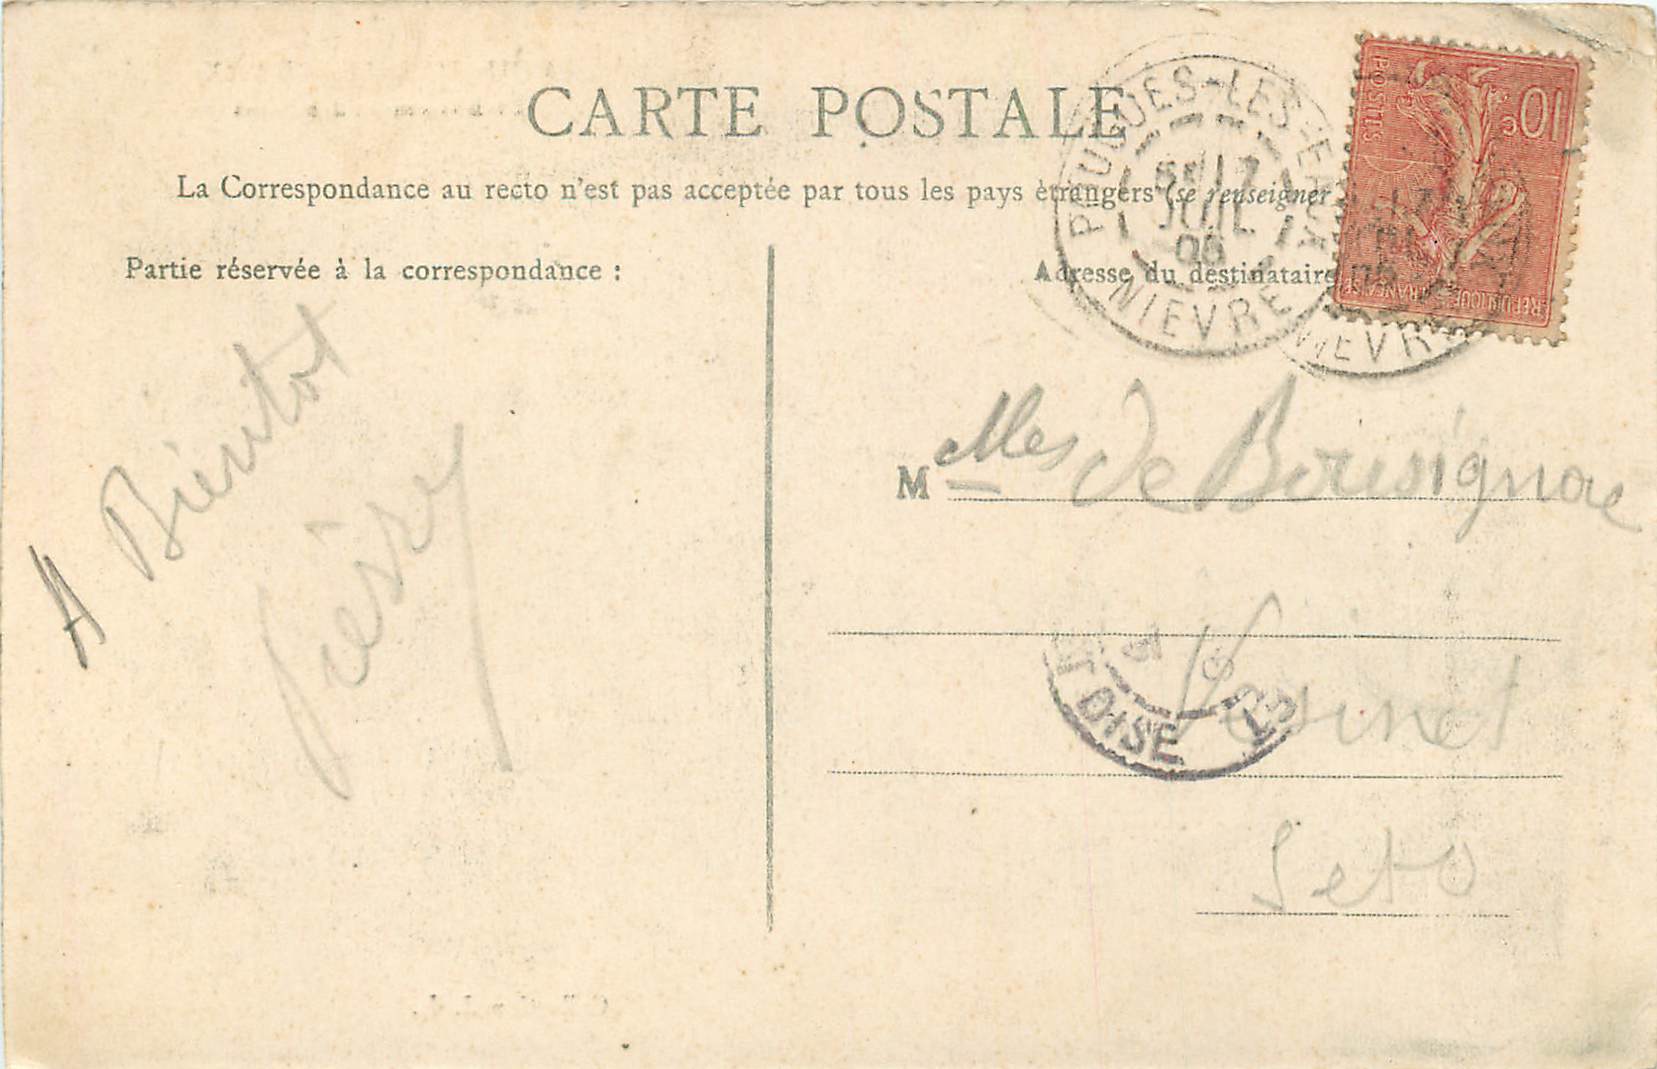 CARTE POSTALE
La Correspondance au recto n'est pas acceptée par tous les pays étrangers (se renseigner
Partie réservée à la correspondance :
Adresse du destinataire
POUGUES-LES-EAUX
17
JUIL
05
NIEVRE
POSTES
10 c
REPUBLIQUE FRANÇAISE
NIEVRE
A Bientot
M elles de
Vesinet
ET OISE